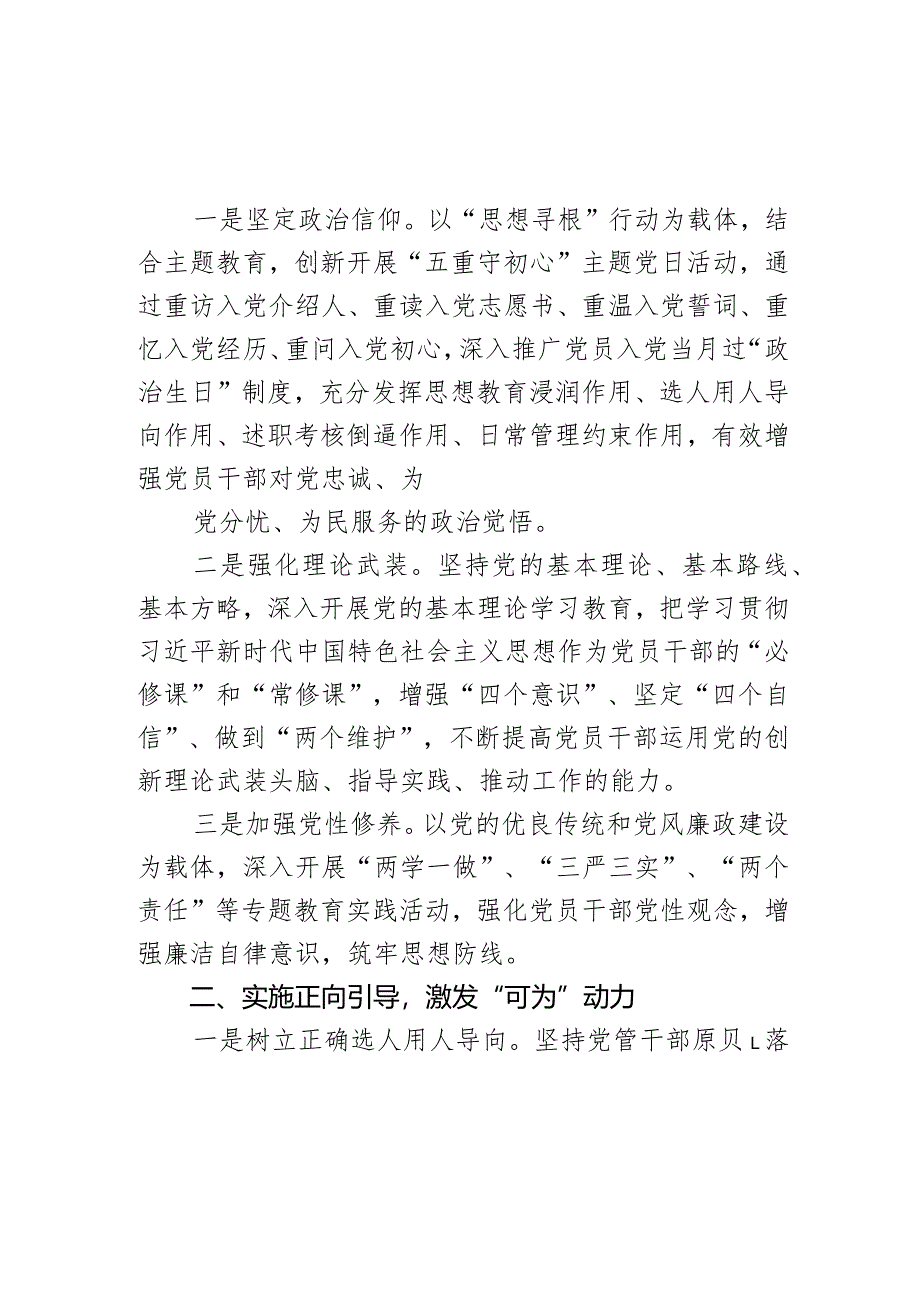 一是坚定政治信仰。以“思想寻根”行动为载体，结
合主题教育，创新开展“五重守初心”主题党日活动，通
过重访入党介绍人、重读入党志愿书、重温入党誓词、重
忆入党经历、重问入党初心，深入推广党员入党当月过“政
治生日”制度，充分发挥思想教育浸润作用、选人用人导
向作用、述职考核倒逼作用、日常管理约束作用，有效增
强党员干部对党忠诚、为
党分忧、为民服务的政治觉悟。
二是强化理论武装。坚持党的基本理论、基本路线、
基本方略，深入开展党的基本理论学习教育，把学习贯彻
习近平新时代中国特色社会主义思想作为党员干部的“必
修课”和“常修课”，增强“四个意识”、坚定“四个自
信”、做到“两个维护”，不断提高党员干部运用党的创
新理论武装头脑、指导实践、推动工作的能力。
三是加强党性修养。以党的优良传统和党风廉政建设
为载体，深入开展“两学一做”、“三严三实”、“两个
责任”等专题教育实践活动，强化党员干部党性观念，增
强廉洁自律意识，筑牢思想防线。
二、实施正向引导，激发“可为”动力
一是树立正确选人用人导向。坚持党管干部原贝ʟ落